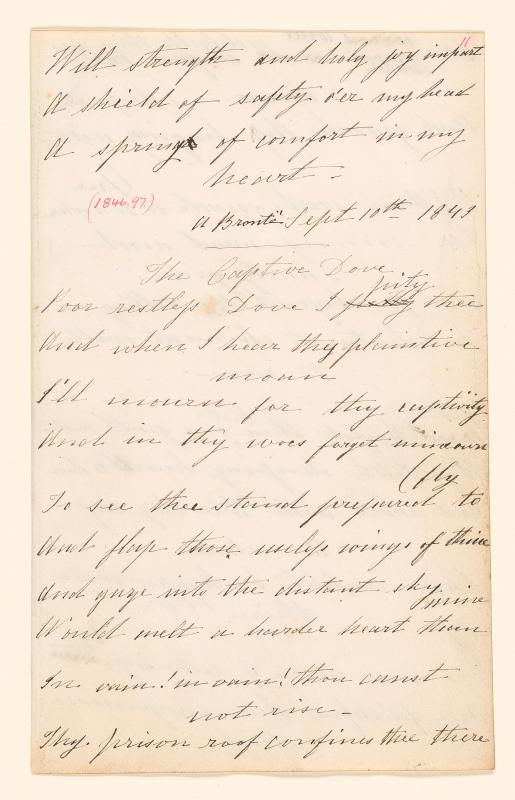 11
Will strength and holy joy impart
A shield of safety o'er my head
A spring of comfort in my
heart –
(1846. 97.)
A Brontë" Sept 10th 1843
The Captive Dove
pity
Poor restless Dove I thee
And when I hear thy plaintive
moan
I'll mourn for thy captivity
And in thy woes forget mine own
(fly
To see thee stand prepared to
And flap those useless wings of thine
And gaze into the distant sky
mine
Would melt a harder heart than
In vain! in vain! thou canst
not rise –
Thy prison roof confines thee there